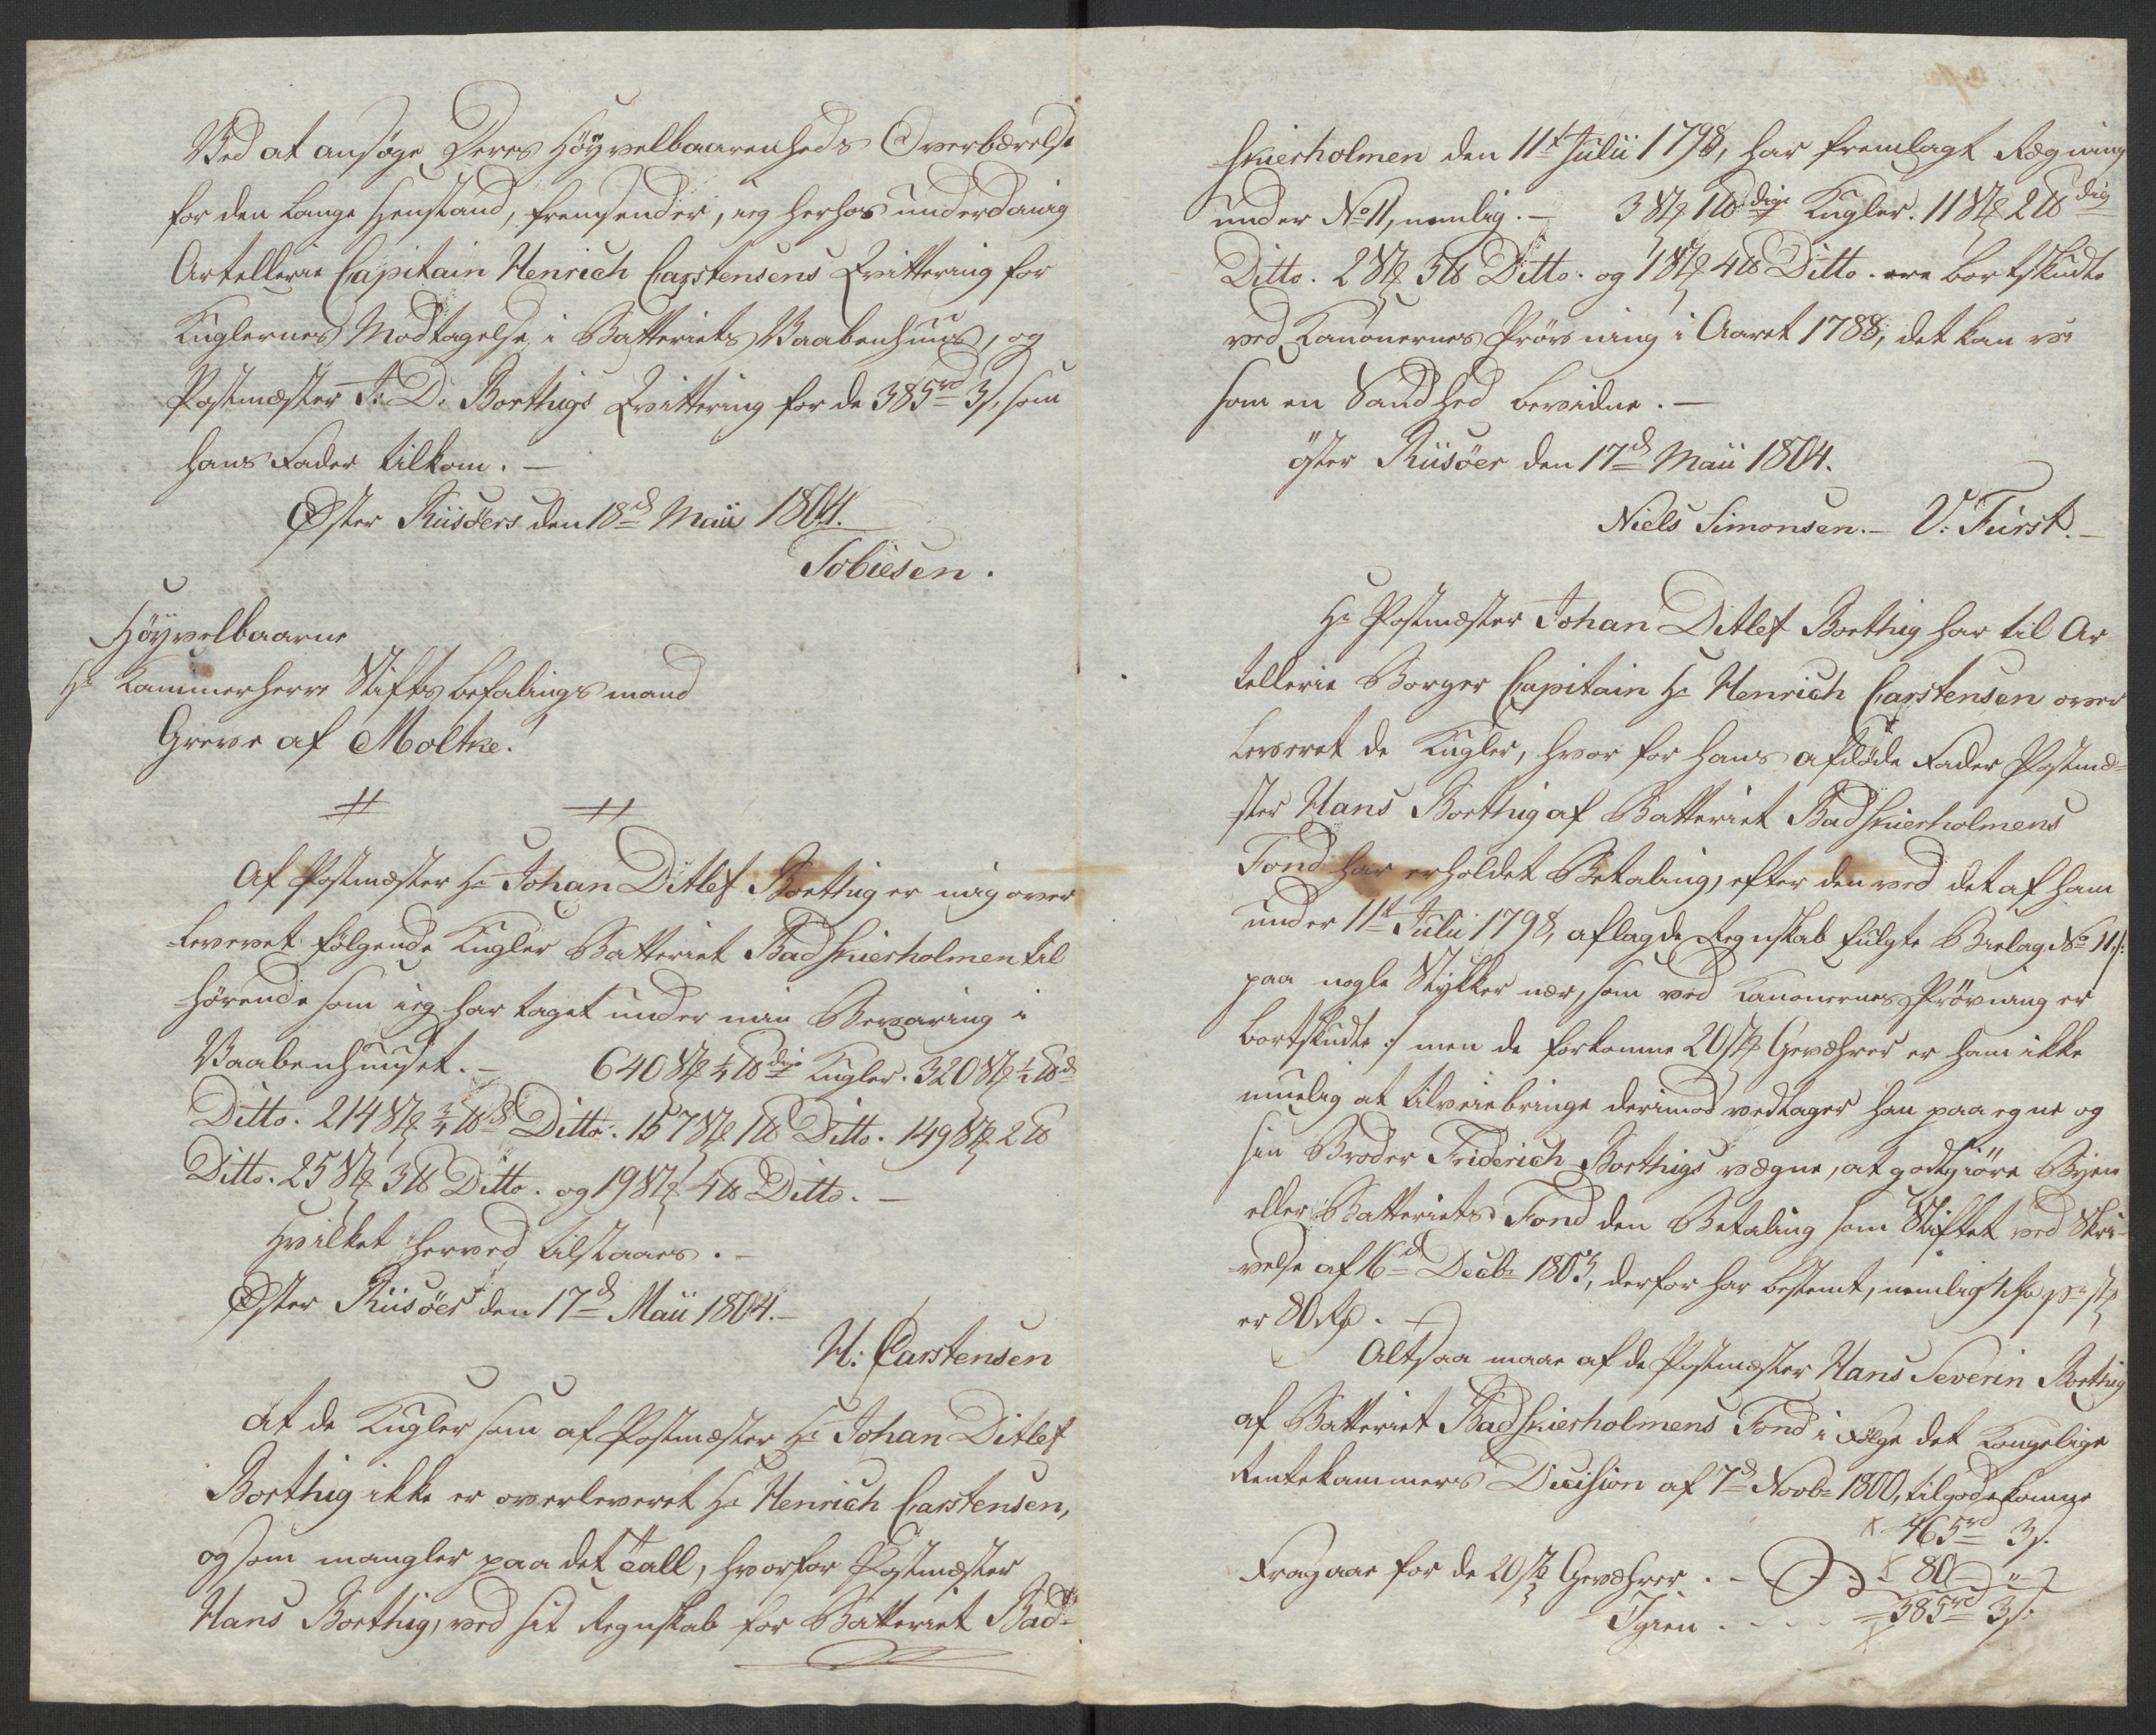 Ved at ansøge Deres Høyvelbaarenheds Overbærelse
for den lange Henstand, fremsender, ieg herhos underdanig
Artellerie Capitain Henrich Carstensens Qvittering for
Kuglernes Modtagelse i Batteriets Vaabenhuus, og
Postmæster J: D: Boethigs Qvittering for de 385rd 3s. som
hans Fader tilkom. —
Øster Riisøers den 18d Maii 1804.
Tobiesen.
Höyvelbaarne
Hr Kammerherre Stiftsbefalingsmand
Greve af Moltke!
Af Postmæster Hr Johan Ditlef Boethig er mig over
leveret følgende Kugler Batteriet Badskierholmen til
hørende som ieg har taget under min Bevaring i
Vaabenhuuset. — 640 Stk ½ ℔dige Kugler. 320 Stk ½ ℔d
Ditto. 214 Stk ¾ ℔d Ditto. 157 Stk 1 ℔ Ditto. 149 Stk 2 ℔
Ditto. 25 Stk 3 ℔ Ditto. og 19 Stk 4 ℔ Ditto. —
Hvilket herved tilstaaes. —
Øster Riisøer den 17d Maii 1804. —
H: Carstensen
At de Kugler som af Postmæster Hr Johan Ditlef
Boethig ikke er overleveret Hr Henrich Carstensen,
og som mangler paa det Tall, hvorfor Postmæster
Hans Boethig, ved sit Regnskab for Batteriet Bad=
skierholmen den 11te Julii 1798, har fremlagt Regning
under No 11, nemlig. — 3 Stk 1 ℔dige Kugler. 11 Stk 2 ℔dig
Ditto. 2 Stk 3 ℔ Ditto. og 1 Stk 4 ℔ Ditto. ere bortskudte
ved Kanonernes Prøvening i Aaret 1788, det kan vi
som en Sandhed bevidne. —
öster Riisöer den 17d Maii 1804.
Niels Simonsen. — V: Fürst. —
Hr Postmæster Johan Ditlef Boethig har til Ar
tellerie Borger Capitain Hr Henrich Carstensen over
leveret de Kugler, hvor for hans afdöde Fader Postmæ=
ster Hans Boethig af Batteriet Badskierholmens
Fond har erholdet Betaling, efter den ved det af ham
under 11te Julii 1798, aflagde Regnskab fulgte Bielag No 11 /:
paa nogle Stykker nær, som ved Kanonernes Prøvning er
bortskudte :/ men de forkomne 20 stk Geværer er ham ikke
muelig at tilveiebringe derimod vedtager han paa egne og
sin Broder Friderich Boethigs vegne, at godtgiöre Byen
eller Batteriets Fond den Betaling som Stiftet ved Skri-
velse af 16d Decbr 1803, derfor har bestemt, nemlig 4 pr stk
er 80 Rd. —
Altsaa maae afde Postmæster Hans Severin Boethig
af Batteriet Badskierholmens Fond i Følge det Kongelige
Rentekammers Decision af 7d Novbr 1800, tilgodekomme
465rd 3s.
Fragaae for de 20 stk Geværer. — 80 "
Igien . . . . 385rd 3s.